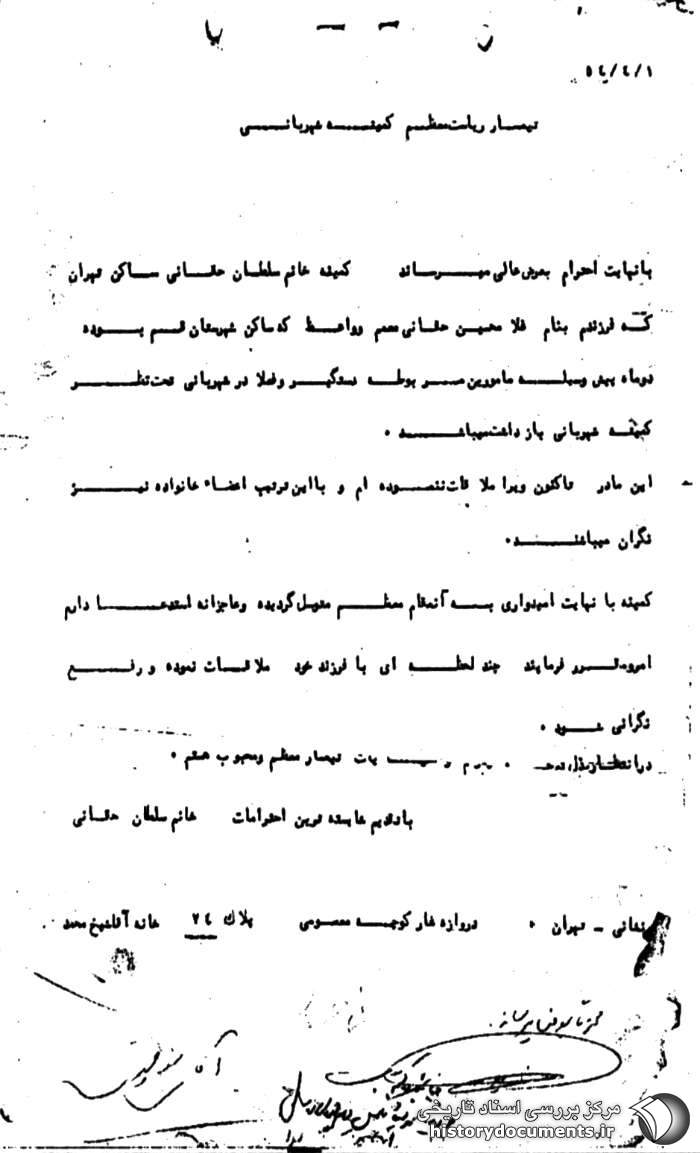 ٥٤/٤/١
تیمسار ریاست معظم کمیته شهربانی
با نهایت احترام بعرض عالی میرساند کمینه خانم سلطان حقانی ساکن تهران
که فرزندم بنام غلا محسین حقانی معمم وواعظ که ساکن شهرستان قم بوده
دوماه پیش وسیله مامورین مربوطه دستگیر وفعلا در شهربانی تحت نظر
کمیته شهربانی بازداشت میباشد .
این مادر تاکنون ویرا ملاقات ننموده ام و با این ترتیب اعضاء خانواده نیز
نگران میباشند .
کمینه با نهایت امیدواری به آنمقام معظم متوسل گردیده وعاجزانه استدعا دارم
امر ومقرر فرمایند چند لحظه ای با فرزند خود ملاقات نموده و رفع
نگرانی شود .
در انتظار بذل توجه تیمسار معظم ومحبوب هستم .
با تقدیم شایسته ترین احترامات خانم سلطان حقانی
نشانی - تهران . دروازه غار کوچه معصومی پلاک ٢٤ خانه آقاشیخ محمد .
مرکز بررسی اسناد تاریخی
historydocuments.ir